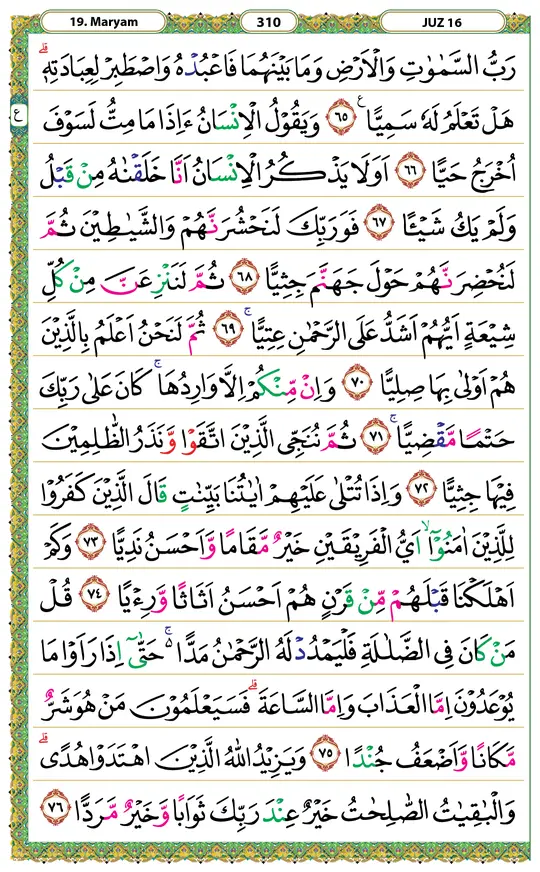 19. Maryam 310 JUZ 16
رَبُّ السَّمٰوٰتِ وَالْاَرْضِ وَمَا بَيْنَهُمَا فَاعْبُدْهُ وَاصْطَبِرْ لِعِبَادَتِهٖۗ
هَلْ تَعْلَمُ لَهٗ سَمِيًّا ࣖ ٦٥ وَيَقُوْلُ الْاِنْسَانُ ءَاِذَا مَا مِتُّ لَسَوْفَ
ع
اُخْرَجُ حَيًّا ٦٦ اَوَلَا يَذْكُرُ الْاِنْسَانُ اَنَّا خَلَقْنٰهُ مِنْ قَبْلُ
وَلَمْ يَكُ شَيْـًٔا ٦٧ فَوَرَبِّكَ لَنَحْشُرَنَّهُمْ وَالشَّيٰطِيْنَ ثُمَّ
لَنُحْضِرَنَّهُمْ حَوْلَ جَهَنَّمَ جِثِيًّا ٦٨ ثُمَّ لَنَنْزِعَنَّ مِنْ كُلِّ
شِيْعَةٍ اَيُّهُمْ اَشَدُّ عَلَى الرَّحْمٰنِ عِتِيًّا ۚ ٦٩ ثُمَّ لَنَحْنُ اَعْلَمُ بِالَّذِيْنَ
هُمْ اَوْلٰى بِهَا صِلِيًّا ٧٠ وَاِنْ مِّنْكُمْ اِلَّا وَارِدُهَا ۚ كَانَ عَلٰى رَبِّكَ
حَتْمًا مَّقْضِيًّا ۚ ٧١ ثُمَّ نُنَجِّى الَّذِيْنَ اتَّقَوْا وَّنَذَرُ الظّٰلِمِيْنَ
فِيْهَا جِثِيًّا ٧٢ وَاِذَا تُتْلٰى عَلَيْهِمْ اٰيٰتُنَا بَيِّنٰتٍ قَالَ الَّذِيْنَ كَفَرُوْا
لِلَّذِيْنَ اٰمَنُوْٓا ۙ اَيُّ الْفَرِيْقَيْنِ خَيْرٌ مَّقَامًا وَّاَحْسَنُ نَدِيًّا ٧٣ وَكَمْ
اَهْلَكْنَا قَبْلَهُمْ مِّنْ قَرْنٍ هُمْ اَحْسَنُ اَثَاثًا وَّرِءْيًا ٧٤ قُلْ
مَنْ كَانَ فِى الضَّلٰلَةِ فَلْيَمْدُدْ لَهُ الرَّحْمٰنُ مَدًّا ۚ ەۚ حَتّٰىٓ اِذَا رَاَوْا مَا
يُوْعَدُوْنَ اِمَّا الْعَذَابَ وَاِمَّا السَّاعَةَ ۗ فَسَيَعْلَمُوْنَ مَنْ هُوَ شَرٌّ
مَّكَانًا وَّاَضْعَفُ جُنْدًا ٧٥ وَيَزِيْدُ اللّٰهُ الَّذِيْنَ اهْتَدَوْا هُدًىۗ
وَالْبٰقِيٰتُ الصّٰلِحٰتُ خَيْرٌ عِنْدَ رَبِّكَ ثَوَابًا وَّخَيْرٌ مَّرَدًّا ٧٦